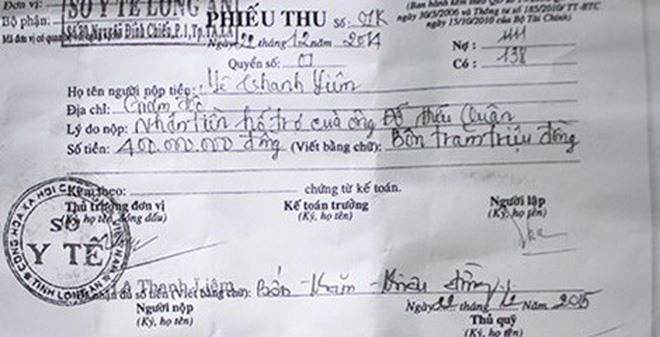 Đơn vị: SỞ Y TẾ LONG AN
Bộ phận: Số 70 Nguyễn Đình Chiểu, P.1, Tp.TA.LA
Mã đơn vị có quan
PHIẾU THU Số: 07K
(Ban hành kèm theo
30/3/2006 và Thông tư số 185/2010/TT-BTC
ngày 15/10/2010 của Bộ Tài Chính)
Ngày 22 tháng 12 năm 2014
Quyển số: 01
Nợ: 111
Có: 138
Họ tên người nộp tiền: Lê Thanh Liêm
Địa chỉ: Giám đốc
Lý do nộp: Nhận tiền hổ trợ của ông Đỗ Quận
Số tiền: 400.000.000 đồng (Viết bằng chữ): Bốn trăm triệu đồng
Kèm theo: chứng từ kế toán.
Thủ trưởng đơn vị Kế toán trưởng Người lập
(Ký, họ tên, đóng dấu) (Ký, họ tên) (Ký, họ tên)
CỘNG HÒA XÃ HỘI VIỆT NAM
SỞ
Y TẾ
TỈNH LONG AN
Lê Thanh Liêm
nhận đủ số tiền (Viết bằng chữ): Bốn trăm triệu đồng
Ngày 22 tháng 12 Năm 2015
Người nộp Thủ quỹ
(Ký, họ tên) (Ký, họ tên)